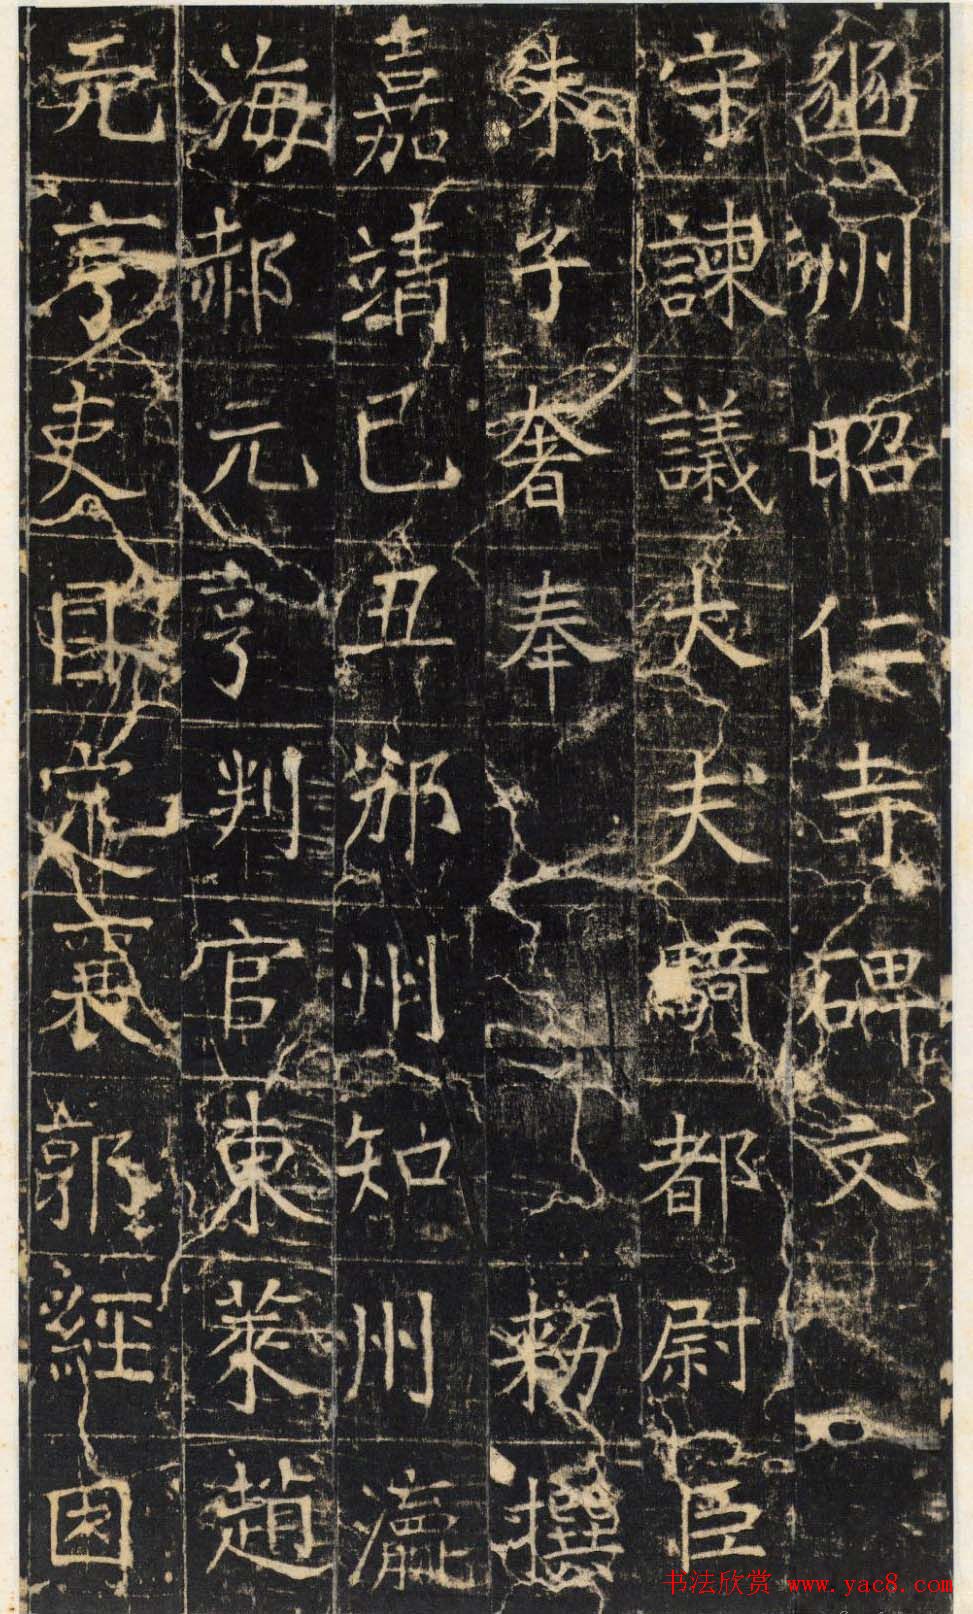 豳州昭仁寺碑文
守諫議大夫騎都尉臣
朱子奢奉 勑撰
嘉靖己丑邠州知州瀛
海郝元亨判官東萊趙
元亨吏目定襄郭經因
书法欣赏 www.yac8.com